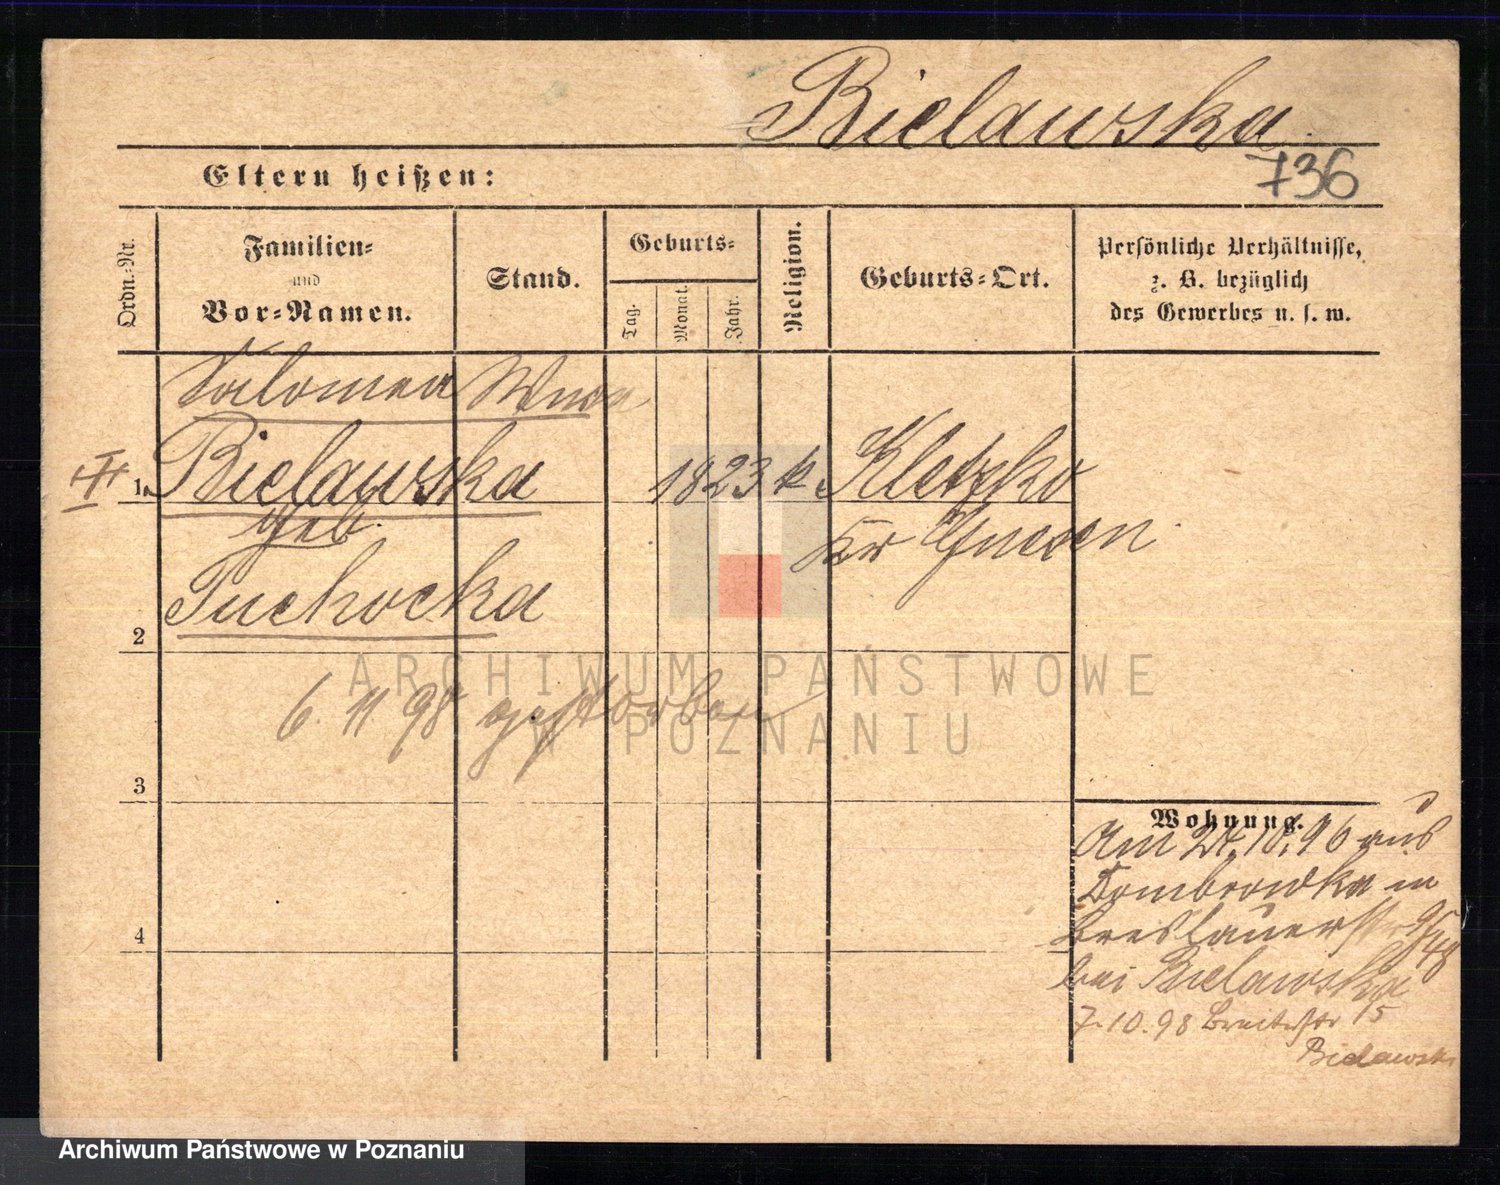 Bielawska
736
Eltern heißen:
Ordn.-Nr.
Familien-
und
Vor-Namen.
Stand.
Geburts-
Tag.
Monat.
Jahr.
Religion.
Geburts-Ort.
Persönliche Verhältnisse,
z. B. bezüglich
des Gewerbes u. s. w.
Salomea
1. Bielawska 1823 k. Kletzko
geb. Kr Gnesen
Tuchocka
2
6. 11 98 gestorben
3
Wohnung.
Am 24.10.96 aus
Dombrowka in
Breslauerstr
4
bei Bielawska
7.10.98 Breitestr 15
Bielawski
ARCHIWUM PAŃSTWOWE
W POZNANIU
Archiwum Państwowe w Poznaniu